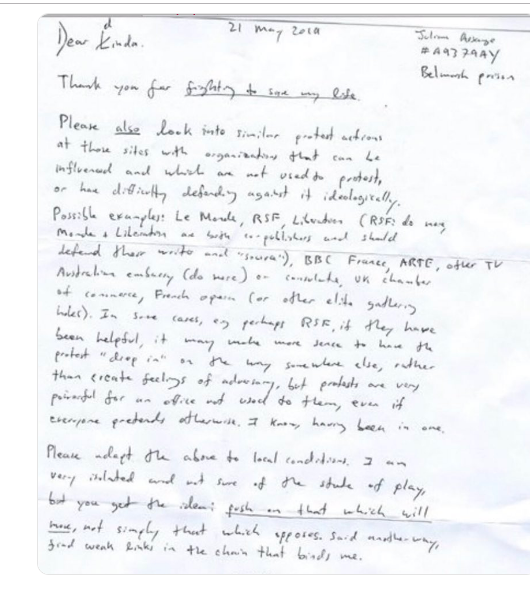 21 May 2019
Julian Assange
#A9379AY
Belmarsh prison
Dear Kinda.
d
Thank you for fighting to save my life.
Please also look into similar protest actions
at those sites with organizations that can be
influenced and which are not used to protest,
or have difficulty defending against it ideologically.
Possible examples: Le Monde, RSF, Liberation (RSF: do more
Monde & Liberation are both co-publishers and should
defend their writer and "source"), BBC France, ARTE, other TV
Australian embassy (do more) or consulate, UK chamber
of commerce, French opera (or other elite gathering
holes). In some cases, eg perhaps RSF, if they have
been helpful, it may make more sense to have the
protest "drop in" on the way somewhere else, rather
than create feelings of adversary, but protests are very
powerful for an office not used to them, even if
everyone pretends otherwise. I know, having been in one.
Please adapt the above to local conditions. I am
very isolated and not sure of the state of play,
but you get the idea: push on that which will
move, not simply that which opposes. Said another way,
find weak links in the chain that binds me.